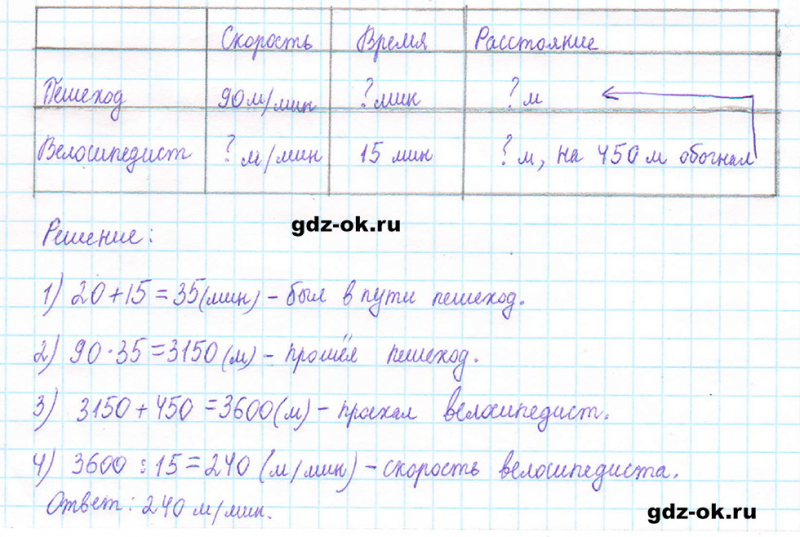 Скорость Время Расстояние
Пешеход 90м/мин ? мин ? м
Велосипедист ? м/мин 15 мин ? м, на 450 м обогнал
gdz-ok.ru
Решение:
1) 20+15=35(мин) – был в пути пешеход.
2) 90·35=3150(м) – прошёл пешеход.
3) 3150+450=3600(м) – проехал велосипедист.
4) 3600:15=240 (м/мин) – скорость велосипедиста.
Ответ: 240 м/мин.
gdz-ok.ru